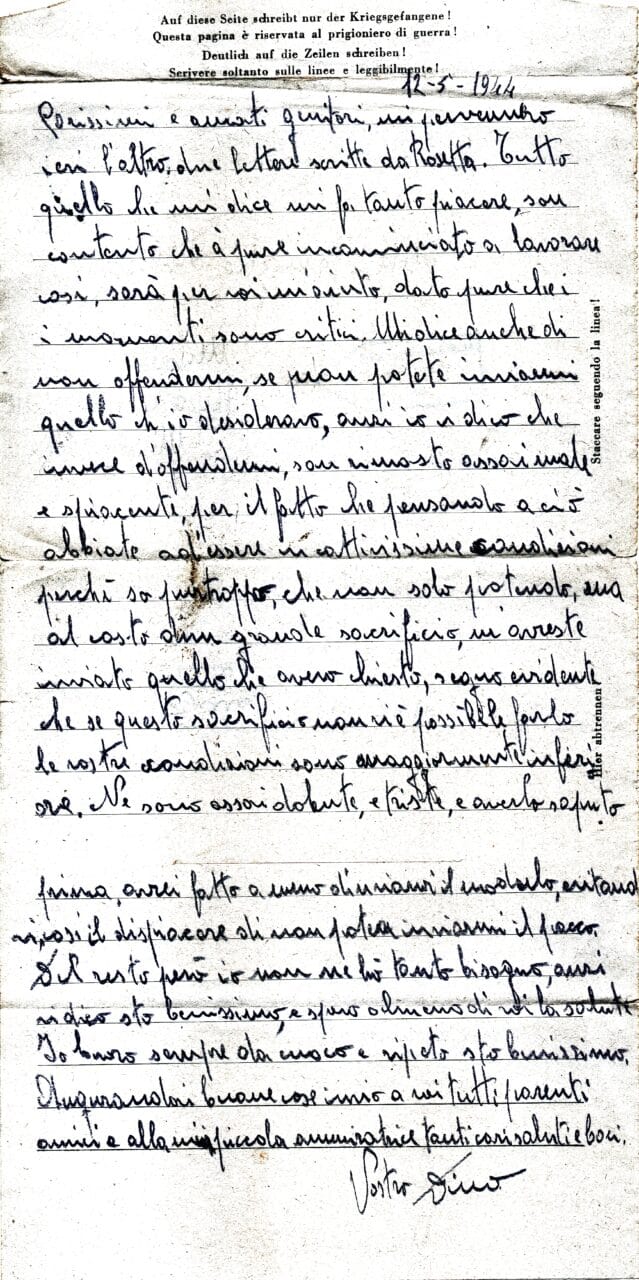 Auf diese Seite schreibt nur der Kriegsgefangene!
Questa pagina è riservata al prigioniero di guerra!
Deutlich auf die Zeilen schreiben!
Scrivere soltanto sulle linee e leggibilmente!
12-5-1944
Carissimi e amati genitori, mi pervennero
ieri l'altro, due lettere scritte da Rosetta. Tutto
quello che mi dice mi fa tanto piacere, son
contento che à pure incominciato a lavorare
così, sarà per voi un aiuto, dato pure che i
i momenti sono critici. Mi dice anche di
non offendermi, se non potete inviarmi
quello ch'io desideravo, anzi io vi dico che
invece d'offendermi, son rimasto assai male
e spiacente, per il fatto che pensando a ciò
abbiate ad essere in cattivissime condizioni
perchè so purtroppo, che non solo potendo, ma
al costo d'un grande sacrificio, m'avreste
inviato quello che avevo chiesto, segno evidente
che se questo sacrificio non vi è possibile farlo
le vostre condizioni sono maggiormente inferi
ore. Ne sono assai dolente, e triste, e averlo saputo
prima, avrei fatto a meno di inviarvi il modulo, evitand
vi, così il dispiacere di non poter inviarmi il pacco.
Del resto però io non ne hò tanto bisogno, anzi
vi dico sto benissimo, e spero almeno di voi la salute
Io lavoro sempre da cuoco e ripeto sto benissimo.
Augurandovi buone cose invio a voi tutti parenti
amici e alla mia piccola ammiratrice tanti cari saluti e baci.
Vostro Dino
Staccare seguendo la linea!
Hier abtrennen